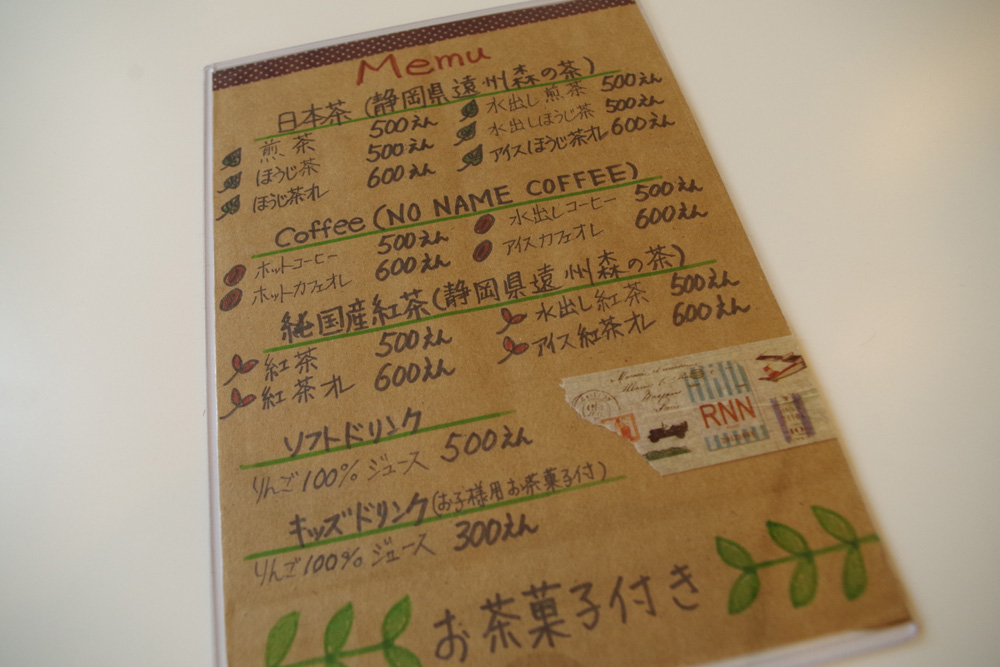 Memu
日本茶(静岡県遠州森の茶)
煎茶 500えん
水出し煎茶 500えん
ほうじ茶 500えん
水出しほうじ茶 500えん
ほうじ茶オレ 600えん
アイスほうじ茶オレ 600えん
Coffee (NO NAME COFFEE)
ホットコーヒー 500えん
水出しコーヒー 500えん
ホットカフェオレ 600えん
アイスカフェオレ 600えん
純国産紅茶(静岡県遠州森の茶)
紅茶 500えん
水出し紅茶 500えん
紅茶オレ 600えん
アイス紅茶オレ 600えん
RNN
ソフトドリンク
りんご100%ジュース 500えん
キッズドリンク(お子様用お茶菓子付)
りんご100%ジュース 300えん
お茶菓子付き